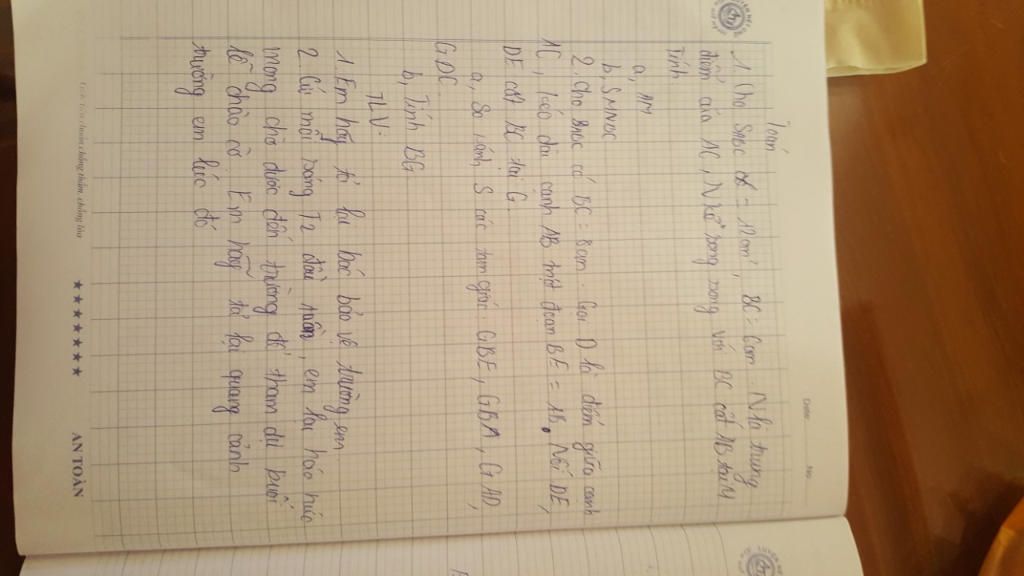 Toán
1. Cho SABC = 12cm², BC = 6cm. N là trung
điểm của AC, N kẻ song song với BC cắt AB tại M
Tính
a, AM
b, SMNBC
2. Cho ABC có BC = 8cm. Gọi D là điểm giữa cạnh
AC, kéo dài cạnh AB một đoạn BE = AB. Nối DE,
DE cắt BC tại G.
a, So sánh S các tam giác GBE, GBA, GAD,
GDC.
b, Tính BG
TLV:
1. Em hãy tả lại bác bảo vệ trường em
2. Cứ mỗi sáng T2 đầu tuần, em lại háo hức
mong chờ được đến trường để tham dự buổi
lễ chào cờ. Em hãy tả lại quang cảnh
trường em lúc đó
★★★★★★★ AN TOÀN